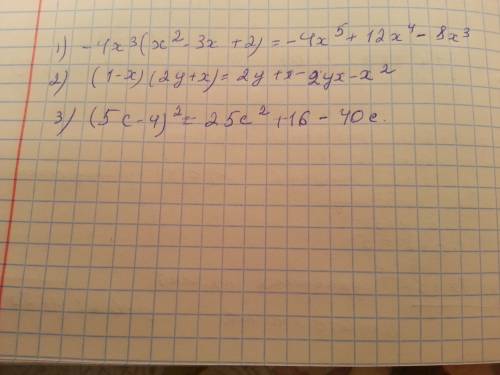 1) -4x³(x²-3x+2)=-4x⁵+12x⁴-8x³
2) (1-x)(2y+x)=2y+x-2yx-x²
3) (5c-4)²=25c²+16-40c.